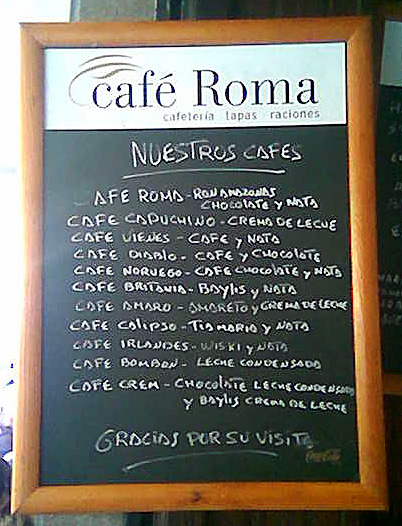 café Roma
cafetería tapas raciones
NUESTROS CAFES
AFE ROMA - RON AMAZONAS
CHOCOLATE Y NATA
CAFE CAPUCHINO - CREMA DE LECHE
CAFE VIENES - CAFE Y NATA
CAFE DIABLO - CAFE Y CHOCOLATE
CAFE NORUEGO - CAFE CHOCOLATE Y NATA
CAFE BRITANIA - BAYLIS Y NATA
CAFE AMARO - AMARETO Y CREMA DE LECHE
CAFE CALIPSO - TIA MARIO Y NATA
CAFE IRLANDES - WISKI Y NATA
CAFE BOMBON - LECHE CONDENSADO
CAFE CREM - CHOCOLATE LECHE CONDENSADO
Y BAYLIS CREMA DE LECHE
GRACIAS POR SU VISITA
Coca-Cola